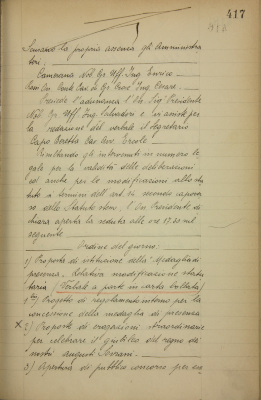 417
Scusando la propria assenza gli Amministra
tori:
Camerana Nob. Gr. Uff. Ing. Enrico. —
Presiede l'adunanza l'On. Sig. Presidente
Nob. Gr. Uff. Ing. Salvadori e lo assiste per
la redazione del verbale il Segretario
Capo Beretta Cav. Ercole. —
Risultando gli intervenuti in numero le
gale per la validità delle deliberazioni
ed anche per le modificazioni allo sta
tuto a termini dell'art. secondo capover
so dello Statuto stesso, l'On. Presidente di
chiara aperta la seduta alle ore 17.30 col
seguente
Ordine del giorno:
1) Proposte di istituzione della Medaglia di
presenza. Relativa modificazione statu
taria (Verbale a parte in carta bollata)
1bis) Progetto di regolamento interno per la
concessione della medaglia di presenza.
x 2) Proposte di erogazioni straordinarie
per celebrare il giubileo del regno dei
nostri augusti Sovrani. —
3) Apertura di pubblico concorso per